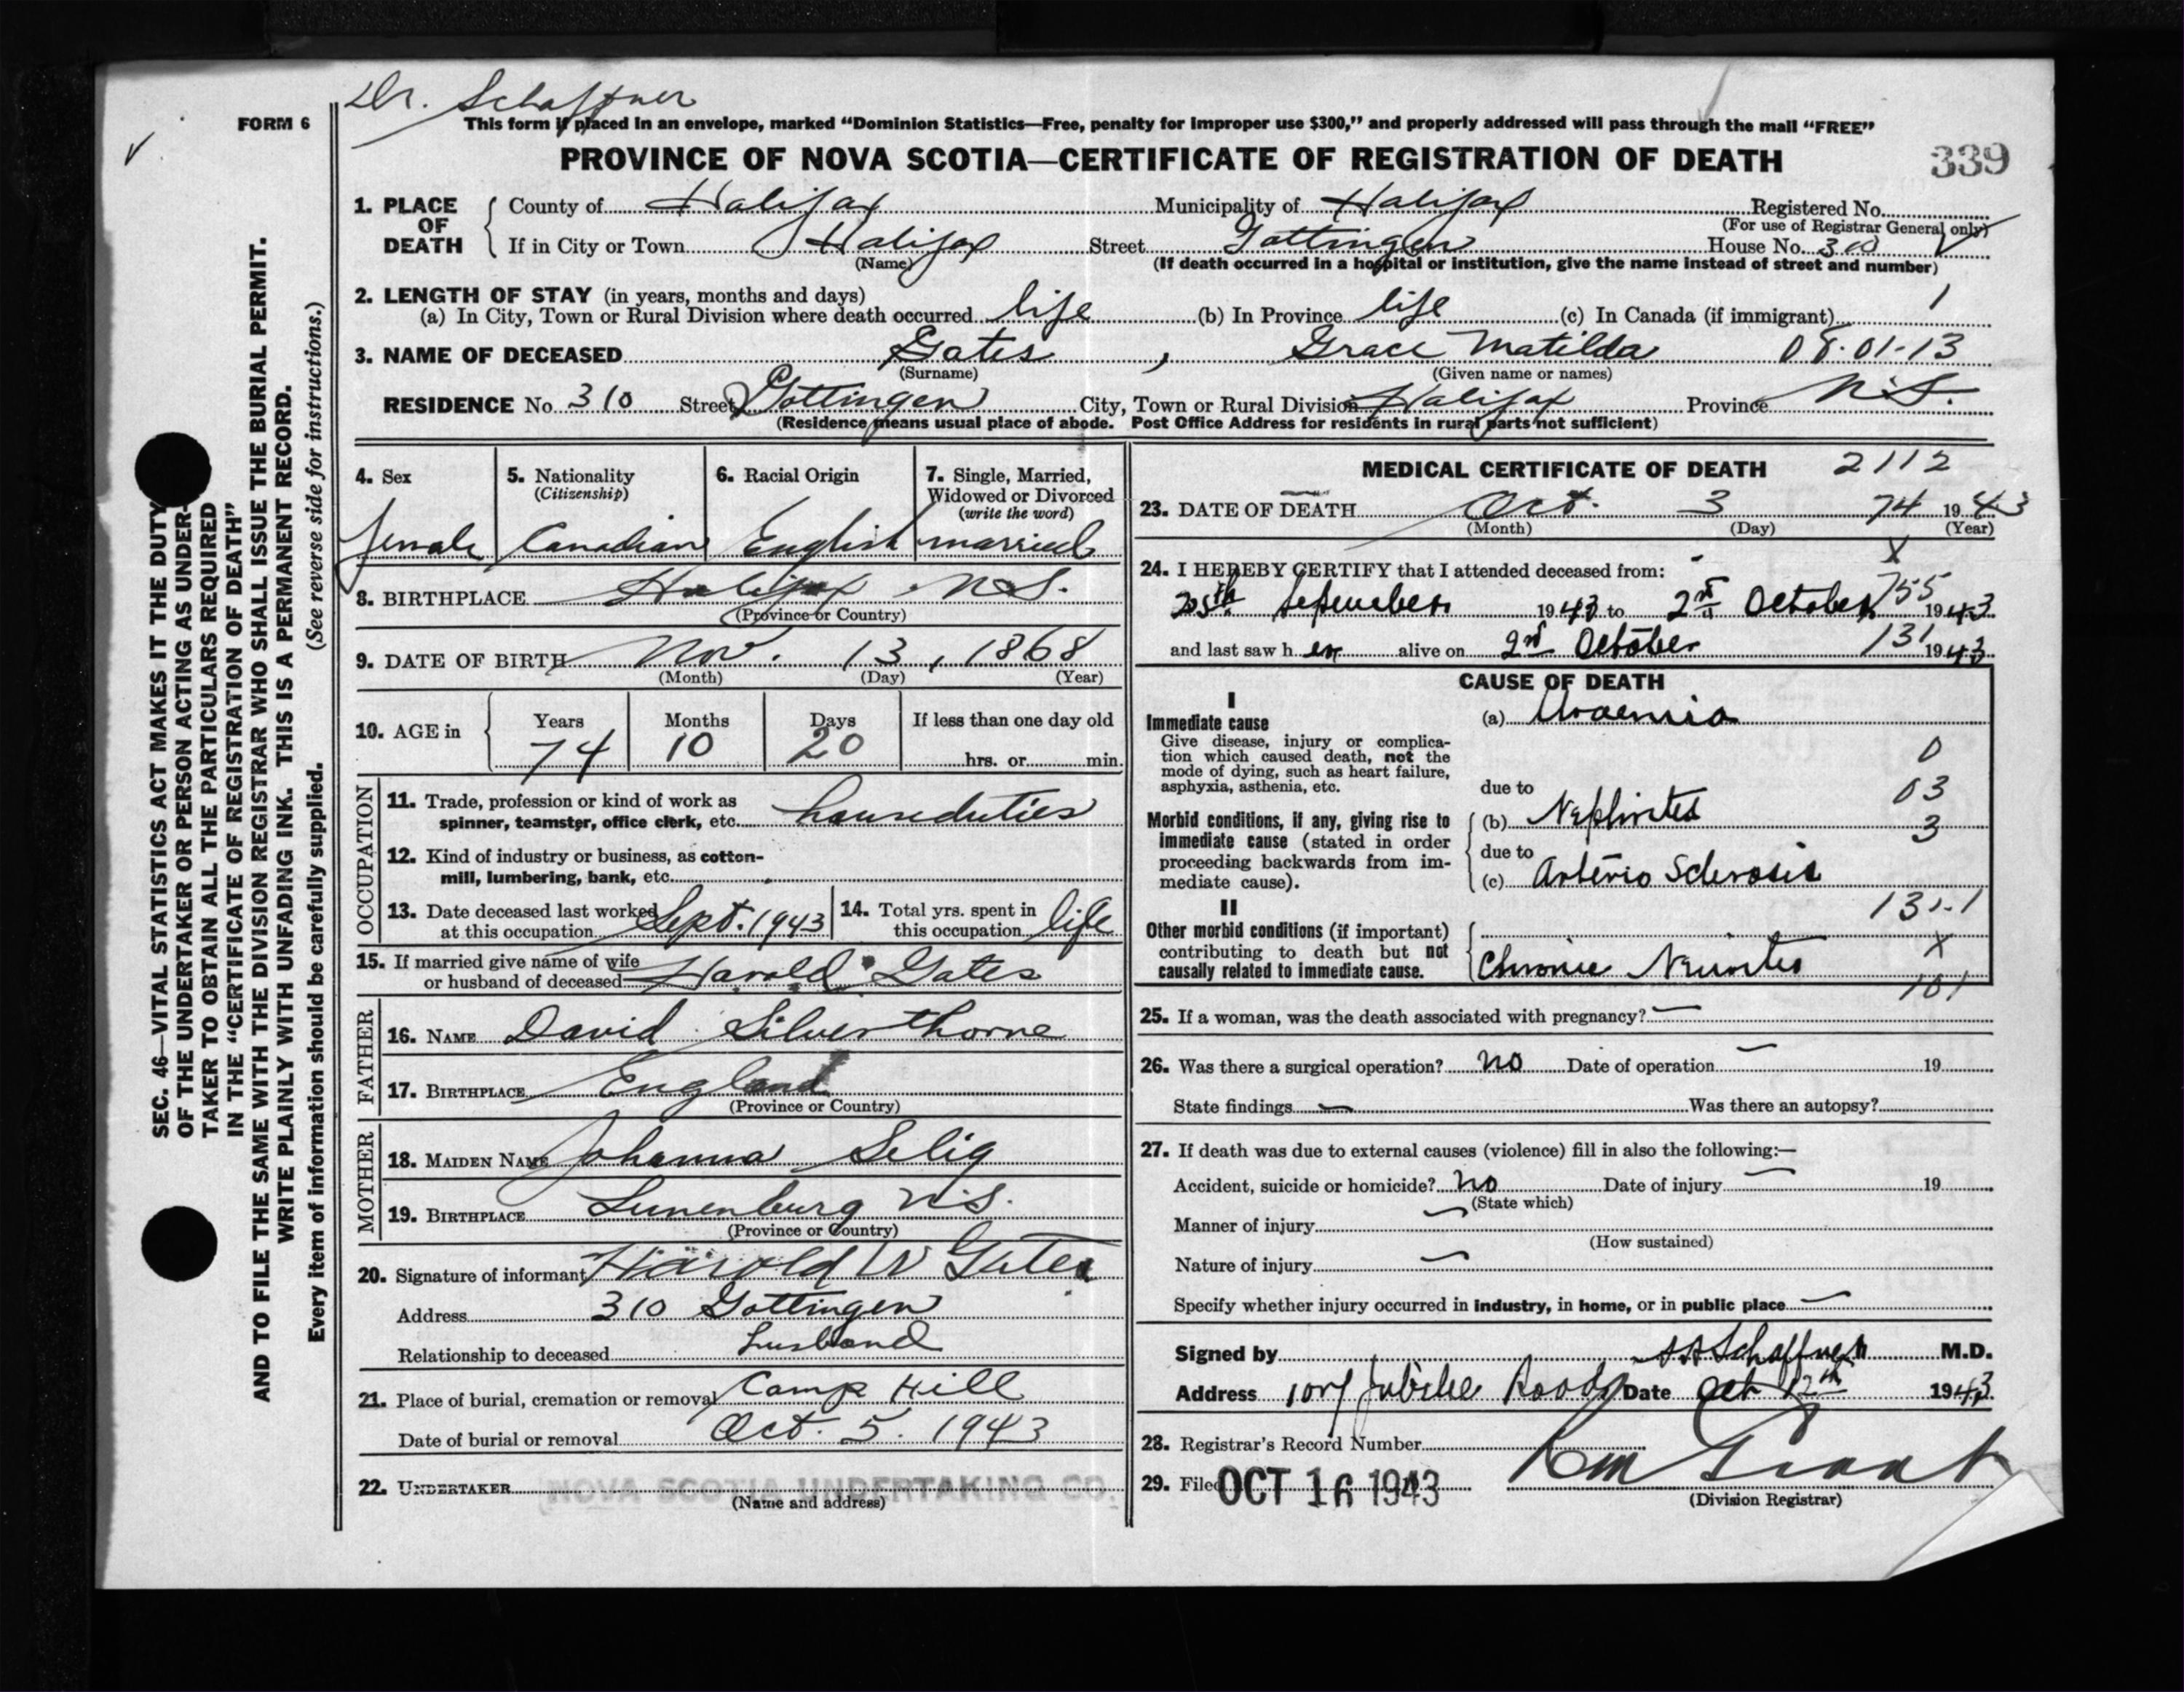 Dr. Schaffner
FORM 6
This form if placed in an envelope, marked “Dominion Statistics—Free, penalty for improper use $300,” and properly addressed will pass through the mail “FREE”
PROVINCE OF NOVA SCOTIA—CERTIFICATE OF REGISTRATION OF DEATH
339
1. PLACE OF DEATH
County of Halifax Municipality of Halifax Registered No.
(For use of Registrar General only)
If in City or Town Halifax Street Gottingen House No. 310
(Name) (If death occurred in a hospital or institution, give the name instead of street and number)
2. LENGTH OF STAY (in years, months and days)
(a) In City, Town or Rural Division where death occurred life (b) In Province life (c) In Canada (if immigrant)
3. NAME OF DECEASED Gates, Grace Matilda 08-01-13
(Surname) (Given name or names)
RESIDENCE No. 310 Street Gottingen City, Town or Rural Division Halifax Province N.S.
(Residence means usual place of abode. Post Office Address for residents in rural parts not sufficient)
4. Sex
female
5. Nationality
(Citizenship)
Canadian
6. Racial Origin
English
7. Single, Married,
Widowed or Divorced
(write the word)
married
8. BIRTHPLACE Halifax N.S.
(Province or Country)
9. DATE OF BIRTH Nov. 13, 1868
(Month) (Day) (Year)
10. AGE in
Years Months Days If less than one day old
74 10 20 hrs. or min.
OCCUPATION
11. Trade, profession or kind of work as
spinner, teamster, office clerk, etc. houseduties
12. Kind of industry or business, as cotton-
mill, lumbering, bank, etc.
13. Date deceased last worked
at this occupation Sept. 1943
14. Total yrs. spent in
this occupation life
15. If married give name of wife
or husband of deceased Harold Gates
FATHER
16. NAME David Silverthorne
17. BIRTHPLACE England
(Province or Country)
MOTHER
18. MAIDEN NAME Johanna Selig
19. BIRTHPLACE Lunenburg N.S.
(Province or Country)
20. Signature of informant Harold W Gates
Address 310 Gottingen
Relationship to deceased husband
21. Place of burial, cremation or removal Camp Hill
Date of burial or removal Oct. 5. 1943
22. UNDERTAKER NOVA SCOTIA UNDERTAKING CO.
(Name and address)
MEDICAL CERTIFICATE OF DEATH 2112
23. DATE OF DEATH Oct. 3 74 1943
(Month) (Day) (Year)
x
24. I HEREBY CERTIFY that I attended deceased from:
25th September 1943 to 2nd October 755 1943
and last saw her alive on 2nd October 131 1943
CAUSE OF DEATH
I
Immediate cause
Give disease, injury or complica-
tion which caused death, not the
mode of dying, such as heart failure,
asphyxia, asthenia, etc.
(a) Uraemia
0
due to
03
Morbid conditions, if any, giving rise to
immediate cause (stated in order
proceeding backwards from im-
mediate cause).
(b) Nephrites
3
due to
(c) Arterio Sclerosis
131-1
II
Other morbid conditions (if important)
contributing to death but not
causally related to immediate cause.
x
Chronic Neurites
101
25. If a woman, was the death associated with pregnancy? —
26. Was there a surgical operation? no Date of operation — 19
State findings — Was there an autopsy?
27. If death was due to external causes (violence) fill in also the following:—
Accident, suicide or homicide? no Date of injury — 19
(State which)
Manner of injury —
(How sustained)
Nature of injury —
Specify whether injury occurred in industry, in home, or in public place —
Signed by Schaffner M.D.
Address 107 Jubilee Road Date Oct 12th 1943
28. Registrar's Record Number
29. Filed OCT 16 1943 Grant
(Division Registrar)
SEC. 46—VITAL STATISTICS ACT MAKES IT THE DUTY
OF THE UNDERTAKER OR PERSON ACTING AS UNDER-
TAKER TO OBTAIN ALL THE PARTICULARS REQUIRED
IN THE “CERTIFICATE OF REGISTRATION OF DEATH”
AND TO FILE THE SAME WITH THE DIVISION REGISTRAR WHO SHALL ISSUE THE BURIAL PERMIT.
WRITE PLAINLY WITH UNFADING INK. THIS IS A PERMANENT RECORD.
Every item of information should be carefully supplied. (See reverse side for instructions.)